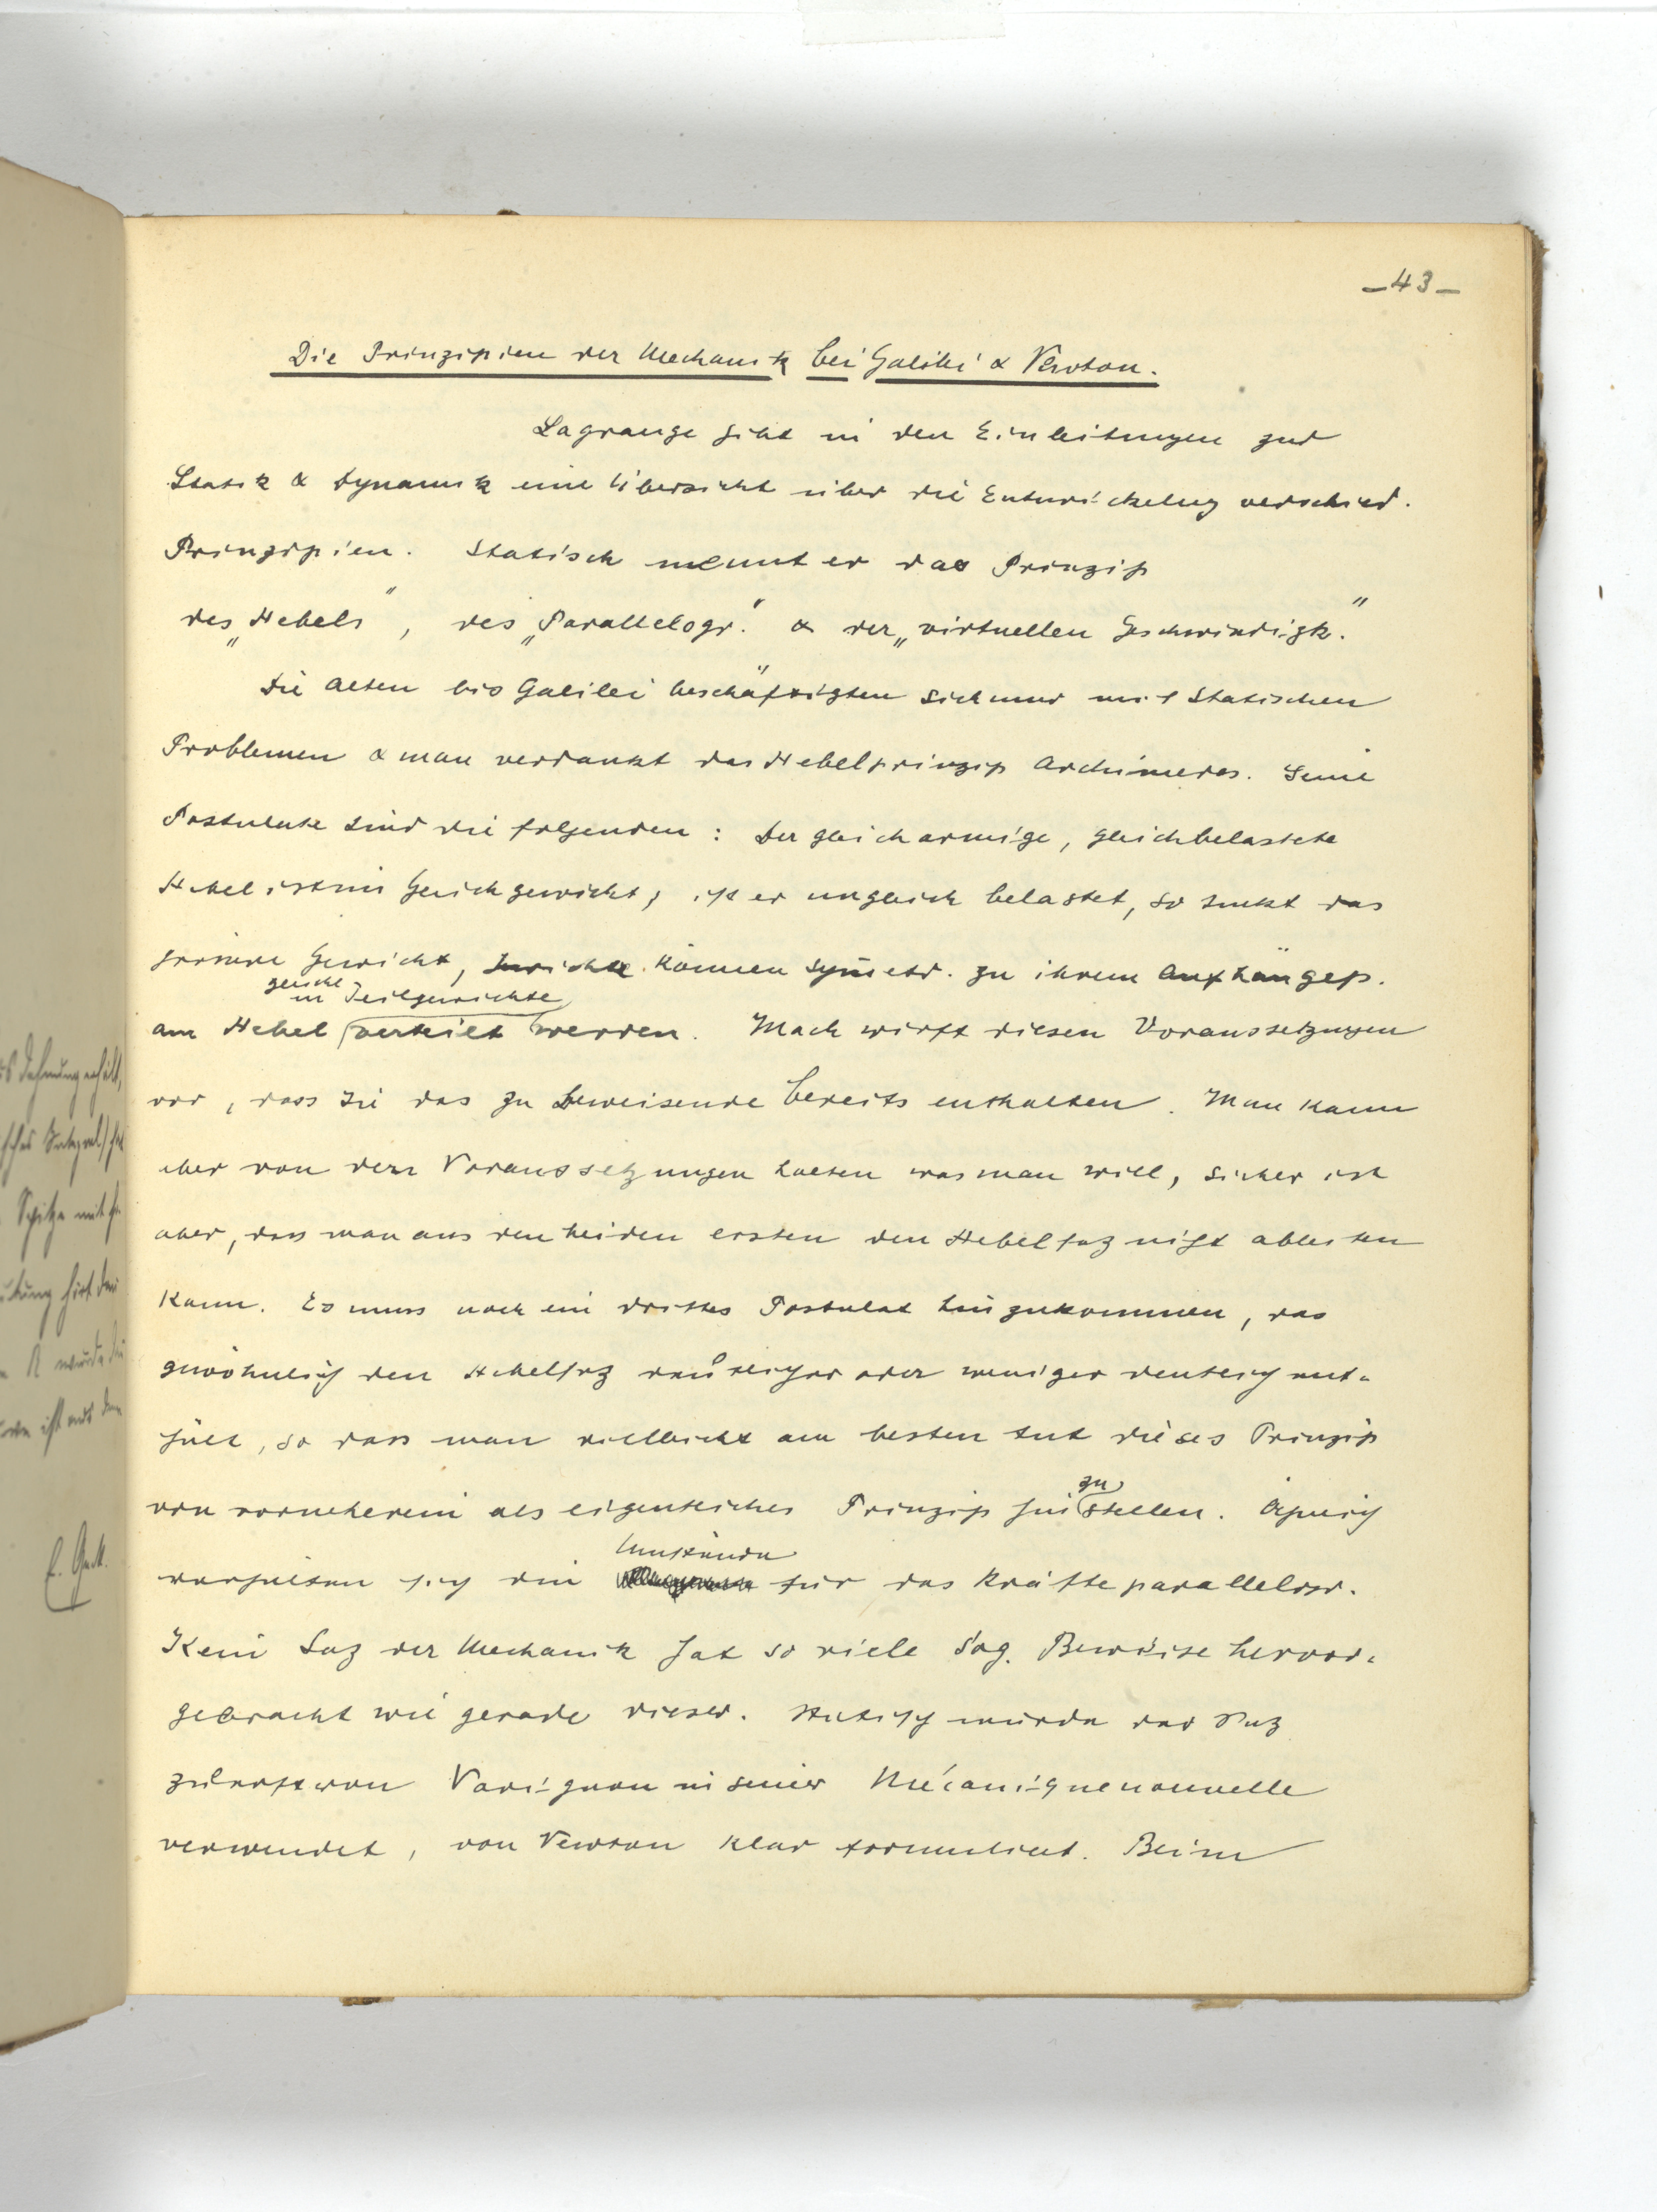 -43-
Die Prinzipien der Mechanik bei Galilei & Newton.
Lagrange gibt in den Einleitungen zur
Statik & Dynamik eine Übersicht über die Entwickelung verschied.
Prinzipien. Statisch nennt er das Prinzip
des „Hebels", des „Parallelogr." & der „virtuellen Geschwindigk."
Die Alten bis Galilei beschäftigten sich nur mit statischen
Problemen & man verdankt das Hebelprinzip Archimedes. Seine
Postulate sind die folgenden: Der gleicharmige, gleichbelastete
Hebel ist im Gleichgewicht, ist er ungleich belastet, so sinkt das
grössere Gewicht, Gewichte können symetr. zu ihrem Aufhängep.
gleiche
in Teilgewichte
am Hebel verteilt werden. Mach wirft diesen Voraussetzungen
vor, dass sie das zu beweisende bereits enthalten. Man kann
aber von den Voraussetzungen halten was man will, sicher ist
aber, dass man aus den beiden ersten den Hebelsaz nicht ableiten
kann. Es muss noch ein drittes Postulat hinzukommen, das
gewöhnlich den Hebelsaz deutlicher oder weniger deutlich ent-
hält, so dass man vielleicht am besten tut dieses Prinzip
zu
von vorneherein als eigentliches Prinzip hinstellen. Ähnlich
Umstände
verhalten sich die für das Kräfteparallelogr.
Kein Saz der Mechanik hat so viele sog. Beweise hervor-
gebracht wie gerade dieser. Statisch wurde der Saz
zuerst von Varignon in seiner Mécanique nouvelle
verwendet, von Newton klar formuliert. Beim
Spitze mit
E. Gutt.